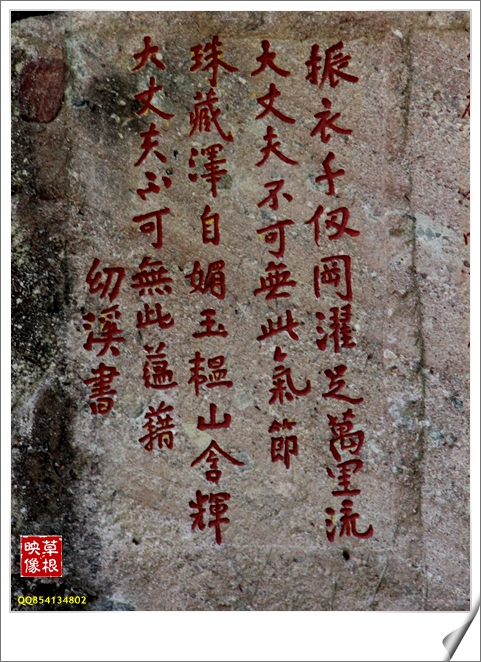 振衣千仞岡濯足萬里流
大丈夫不可無此氣節
珠藏澤自媚玉韞山含輝
大丈夫不可無此蘊藉
幼溪書
草根
映像
QQ854134802